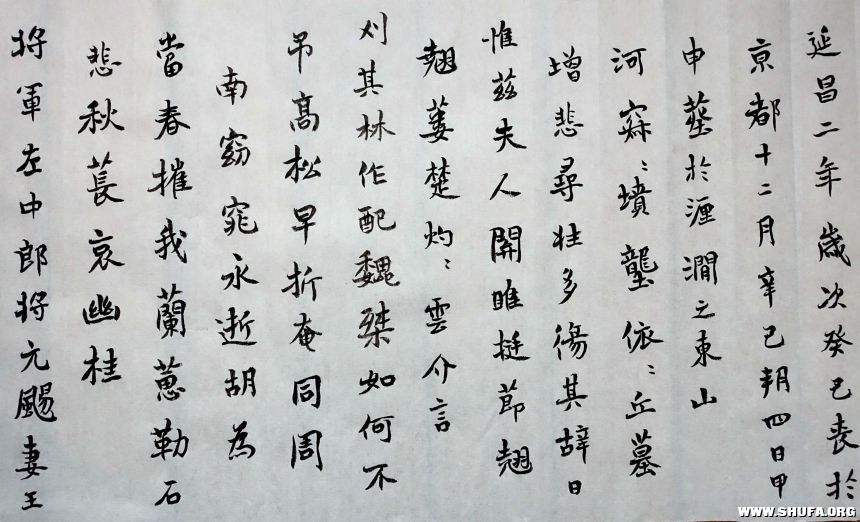 延昌二年歲次癸巳喪於
京都十二月辛巳朔四日甲
申塟於瀍澗之東山
河寂〻墳壟依〻丘墓
增悲尋往多傷其辞曰
惟茲夫人關雎挺莭翹
翹蔞楚灼〻雲介言
刈其林作配魏桀如何不
吊高松早折奄同周
南窈窕永逝胡為
當春摧我蘭蕙勒石
悲秋萇哀幽桂
将軍左中郎将元颺妻王
WWW.SHUFA.ORG